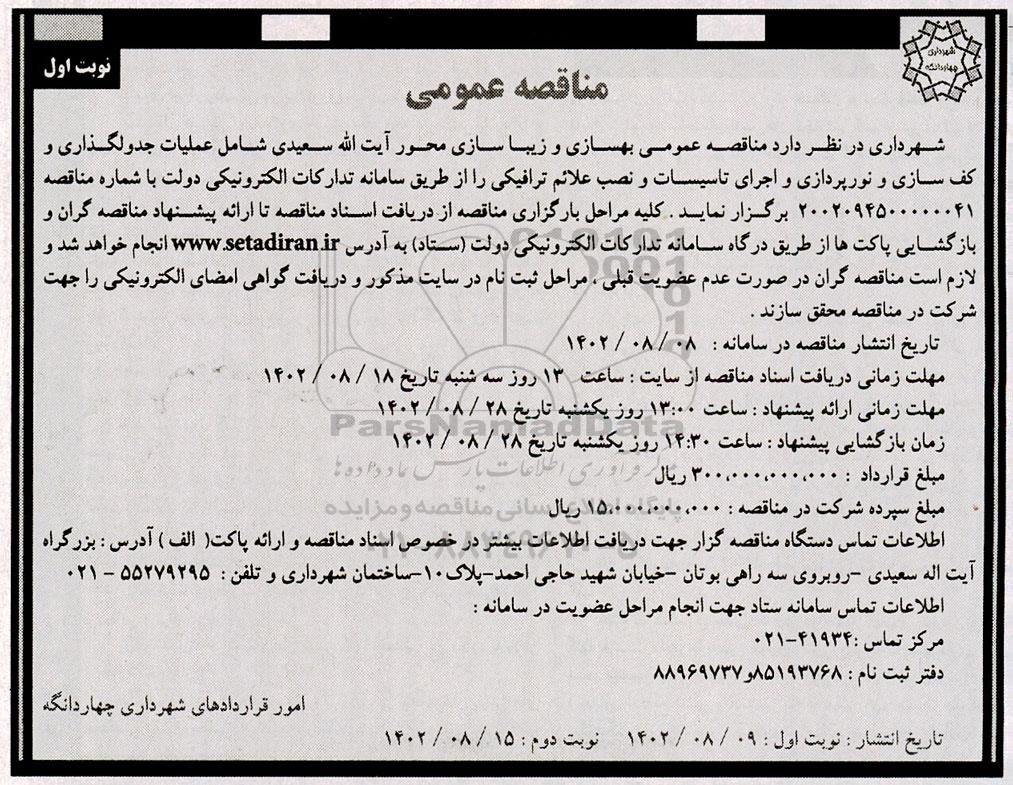 شهرداری
چهاردانگه
نوبت اول
مناقصه عمومی
شهرداری در نظر دارد مناقصه عمومی بهسازی و زیبا سازی محور آیت الله سعیدی شامل عملیات جدولگذاری و
کف سازی و نورپردازی و اجرای تاسیسات و نصب علائم ترافیکی را از طریق سامانه تدارکات الکترونیکی دولت با شماره مناقصه
۲۰۰۲۰۹۴۵۰۰۰۰۰۰۴۱ برگزار نماید . کلیه مراحل بارگزاری مناقصه از دریافت اسناد مناقصه تا ارائه پیشنهاد مناقصه گران و
بازگشایی پاکت ها از طریق درگاه سامانه تدارکات الکترونیکی دولت (ستاد) به آدرس www.setadiran.ir انجام خواهد شد و
لازم است مناقصه گران در صورت عدم عضویت قبلی ، مراحل ثبت نام در سایت مذکور و دریافت گواهی امضای الکترونیکی را جهت
شرکت در مناقصه محقق سازند .
تاریخ انتشار مناقصه در سامانه : ۰۸ / ۰۸ / ۱۴۰۲
مهلت زمانی دریافت اسناد مناقصه از سایت : ساعت ۱۳ روز سه شنبه تاریخ ۱۸ / ۰۸ / ۱۴۰۲
مهلت زمانی ارائه پیشنهاد : ساعت ۱۳:۰۰ روز یکشنبه تاریخ ۲۸ / ۰۸ / ۱۴۰۲
ParsNamadData
زمان بازگشایی پیشنهاد : ساعت ۱۴:۳۰ روز یکشنبه تاریخ ۲۸ / ۰۸ / ۱۴۰۲
مبلغ قرارداد : ۳۰۰,۰۰۰,۰۰۰,۰۰۰ ریال
مبلغ سپرده شرکت در مناقصه : ۱۵,۰۰۰,۰۰۰,۰۰۰ ریال
پایگاه اطلاع رسانی مناقصه و مزایده
اطلاعات تماس دستگاه مناقصه گزار جهت دریافت اطلاعات بیشتر در خصوص اسناد مناقصه و ارائه پاکت( الف ) آدرس : بزرگراه
آیت اله سعیدی -روبروی سه راهی بوتان -خیابان شهید حاجی احمد-پلاک۱۰-ساختمان شهرداری و تلفن : ۵۵۲۷۹۲۹۵ - ۰۲۱
اطلاعات تماس سامانه ستاد جهت انجام مراحل عضویت در سامانه :
مرکز تماس :۴۱۹۳۴-۰۲۱
دفتر ثبت نام : ۸۵۱۹۳۷۶۸و۸۸۹۶۹۷۳۷
امور قراردادهای شهرداری چهاردانگه
تاریخ انتشار : نوبت اول : ۰۹ / ۰۸ / ۱۴۰۲ نوبت دوم : ۱۵ / ۰۸ / ۱۴۰۲